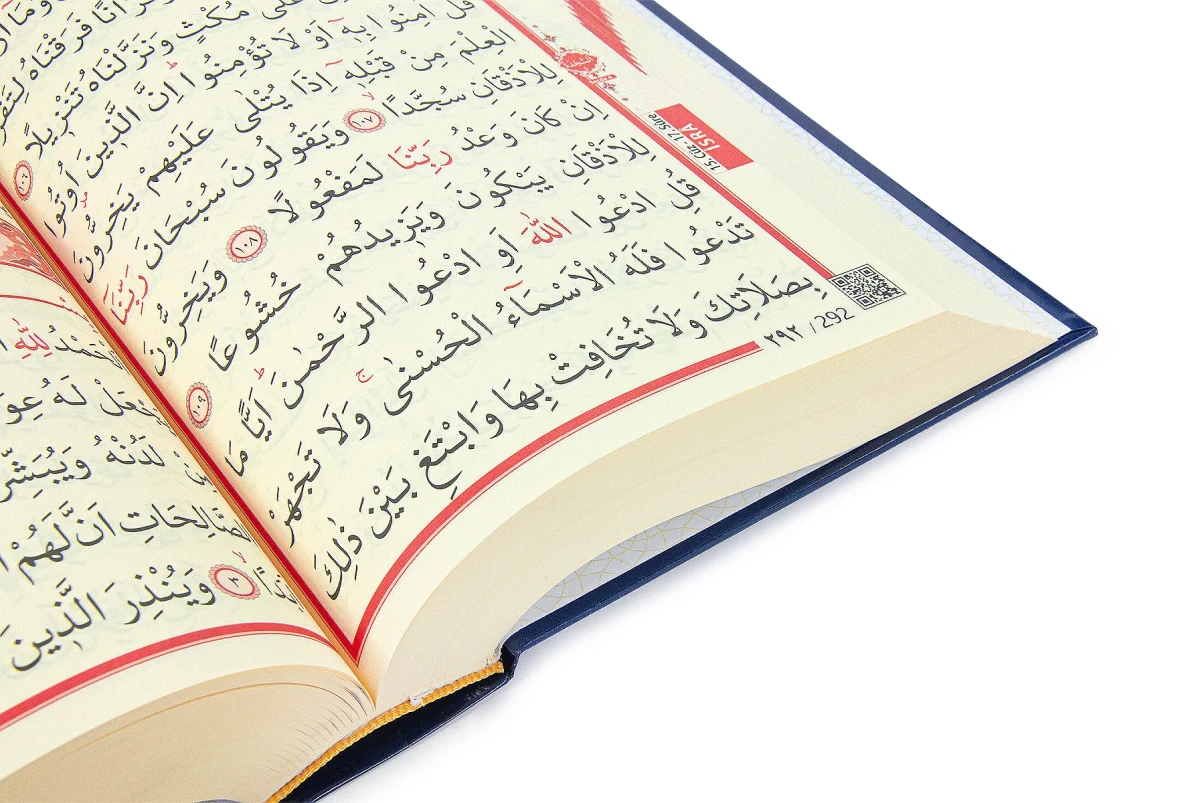 عَلٰى مُكْثٍ وَنَزَّلْنَاهُ تَنْز۪يلًا ١٠٦
قُلْ اٰمِنُوا بِه۪ٓ اَوْ لَا تُؤْمِنُواۜ اِنَّ الَّذ۪ينَ اُو۫تُوا
الْعِلْمَ مِنْ قَبْلِه۪ٓ اِذَا يُتْلٰى عَلَيْهِمْ يَخِرُّونَ
لِلْاَذْقَانِ سُجَّدًاۙ ١٠٧ وَيَقُولُونَ سُبْحَانَ رَبِّنَٓا
اِنْ كَانَ وَعْدُ رَبِّنَا لَمَفْعُولًا ١٠٨ وَيَخِرُّونَ
لِلْاَذْقَانِ يَبْكُونَ وَيَز۪يدُهُمْ خُشُوعًا ١٠٩
قُلِ ادْعُوا اللّٰهَ اَوِ ادْعُوا الرَّحْمٰنَۜ اَيًّا مَا
تَدْعُوا فَلَهُ الْاَسْمَٓاءُ الْحُسْنٰىۚ وَلَا تَجْهَرْ
بِصَلَاتِكَ وَلَا تُخَافِتْ بِهَا وَابْتَغِ بَيْنَ ذٰلِكَ
15. Cüz - 17. Sûre
İSRA
٢٩٢ / 292
لِلّٰهِ
لَهُ
لَدُنْهُ
الصَّالِحَاتِ اَنَّ لَهُمْ
٣ وَيُنْذِرَ الَّذ۪ينَ